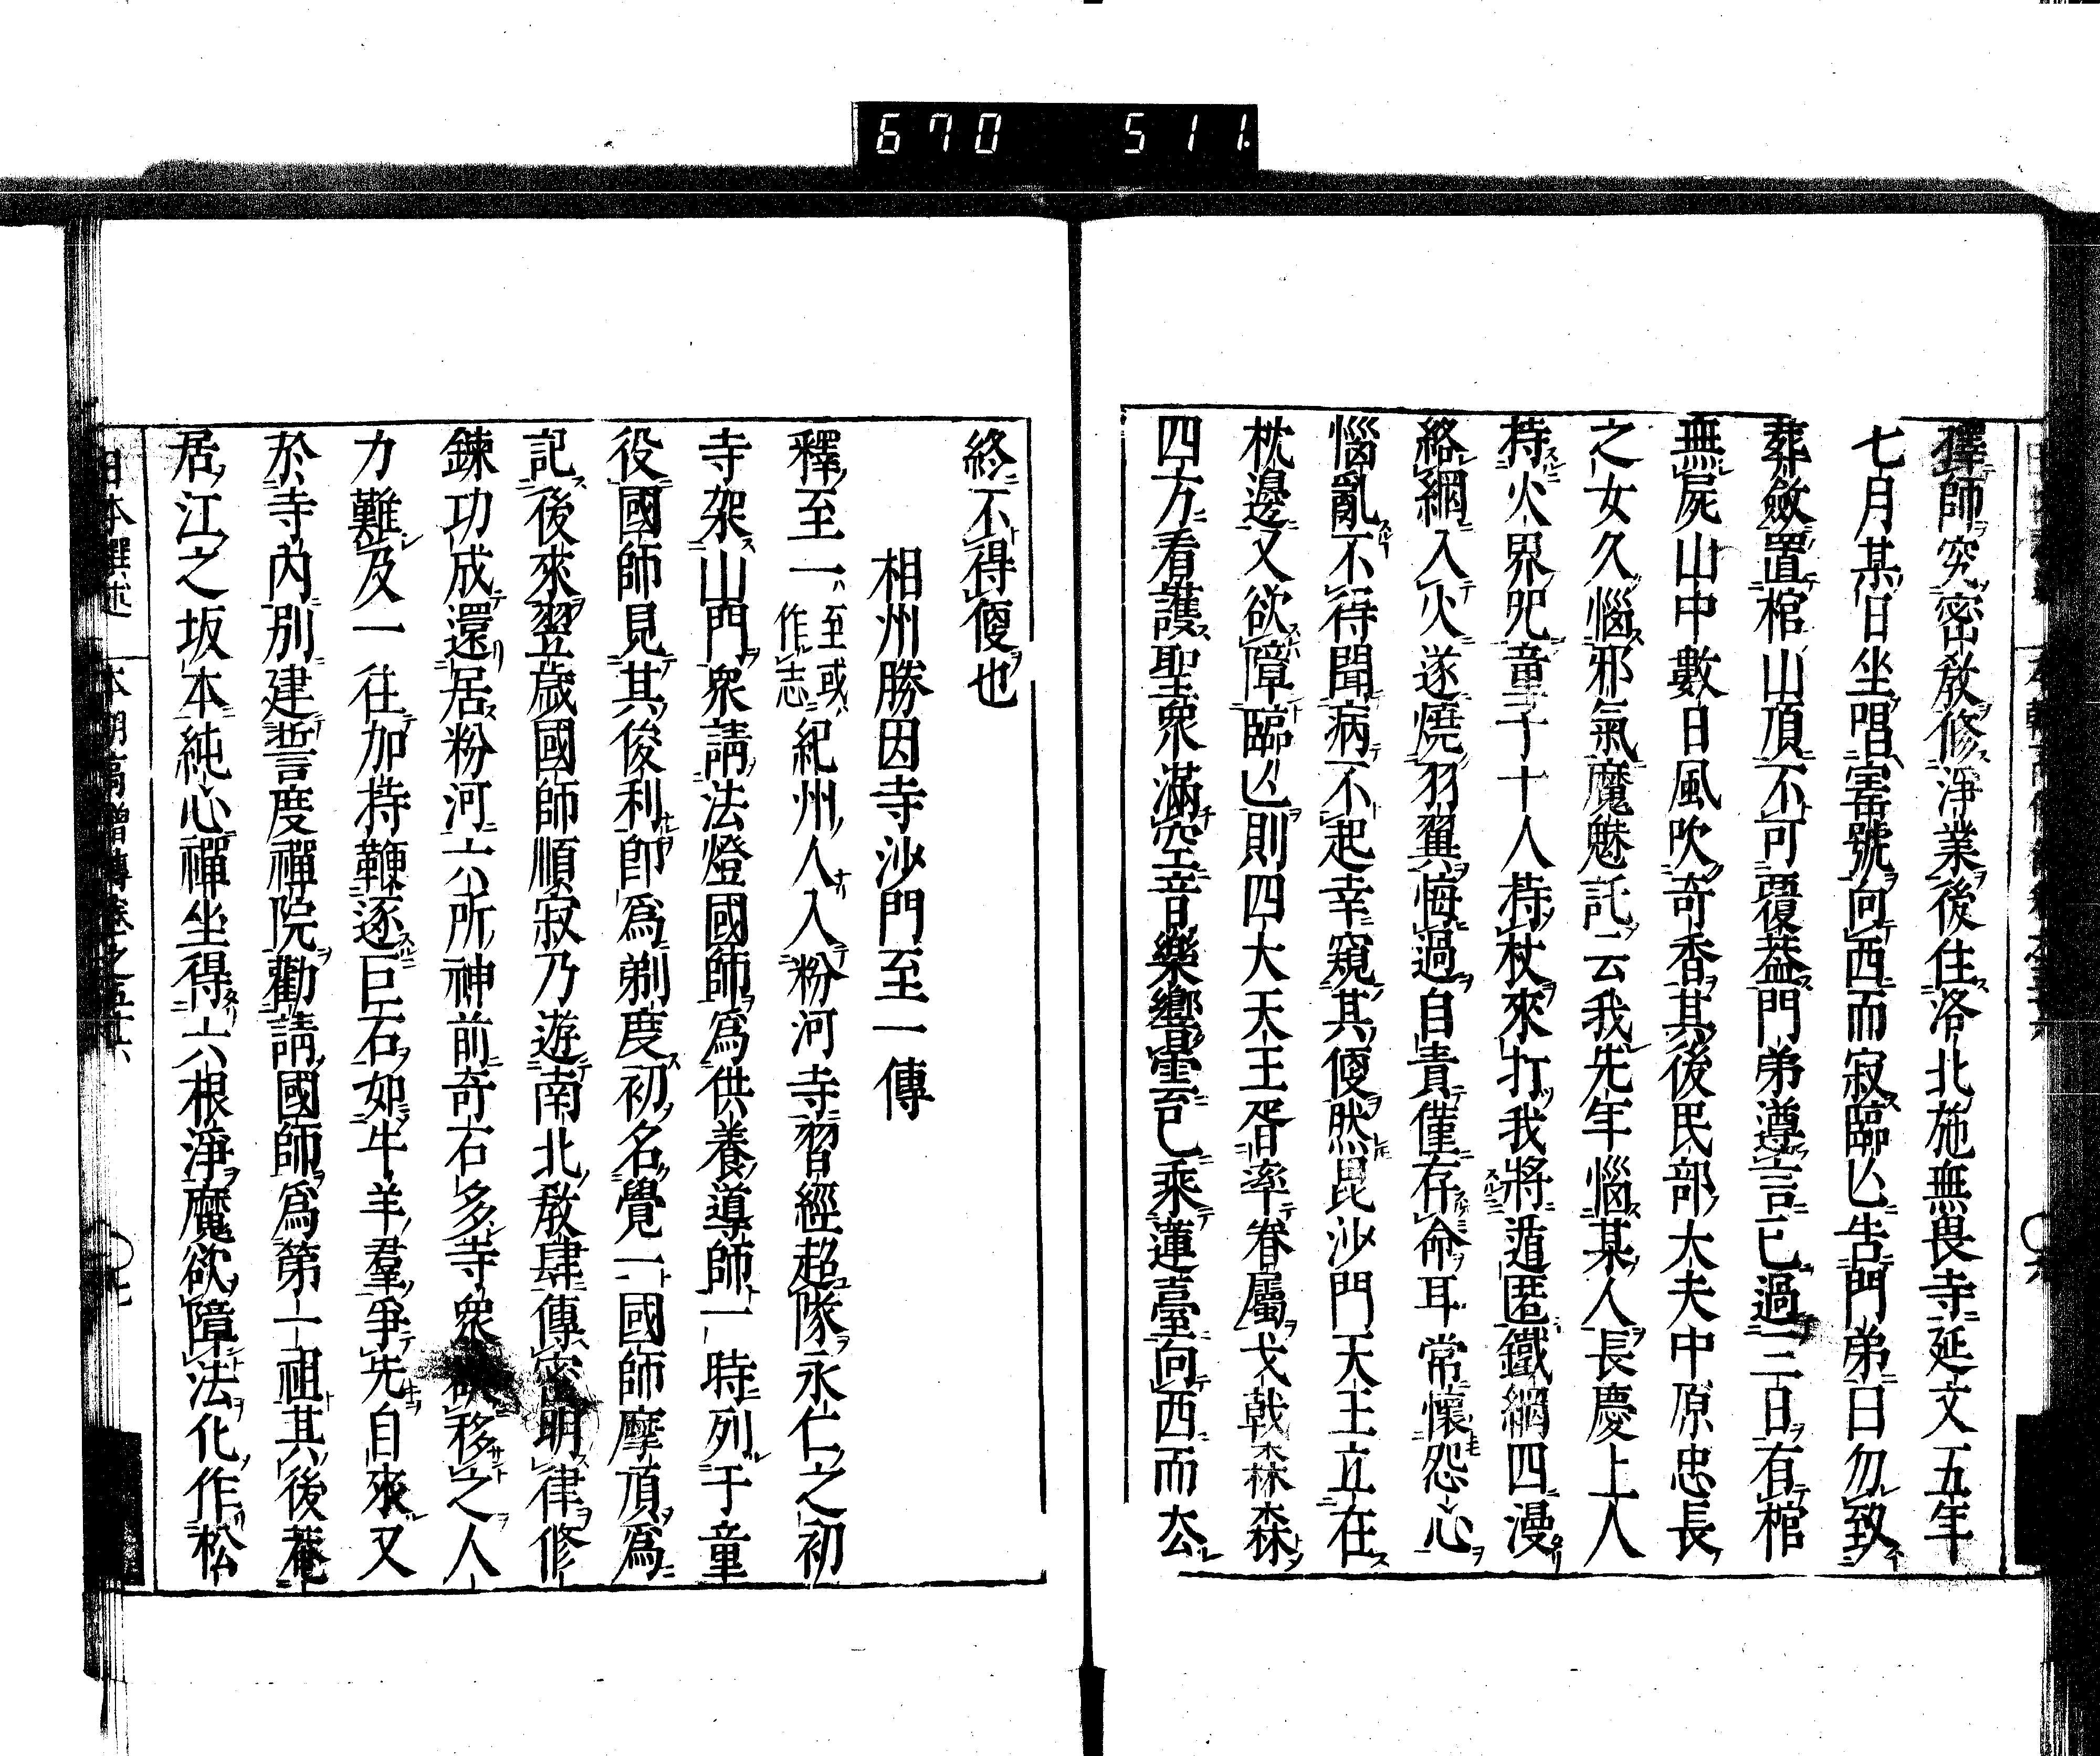 670 511.
擇師究密教修淨業後住洛北施無畏寺延文五年
七月某日坐唱寳號向西而寂臨亾告門弟曰勿致
葬斂置棺山頂不可覆葢門弟遵言已過三日有棺
無屍山中數日風吹奇香其後民部大夫中原忠長
之女久惱邪氣魔魅託云我先年惱某人長慶上人
持火界咒童子十人持杖來打我將遁匿鐵網四漫
絡網入火遂燒羽翼悔過自責僅存命耳常懷怨心
惱亂不得聞病不起幸窺其便然毘沙門天王立在
枕邊又欲障臨亾則四大天王胥率眷屬戈戟森森
四方看護聖衆滿空音樂響雲已乘蓮臺向西而厺
終不得便也
相州勝因寺沙門至一傳
釋至一至或作志紀州人入粉河寺習經超隊永仁之初
寺架山門衆請法燈國師爲供養導師一時列于童
役國師見其俊利即爲剃度初名覺一國師摩頂爲
記後來翌歲國師順寂乃遊南北教肆傳密明律修
鍊功成還居粉河六所神前奇石多寺衆欲移之人
力難及一往加持鞭逐巨石如牛羊羣爭先自來又
於寺內別建誓度禪院勸請國師爲第一祖其後菴
居江之坂本純心禪坐得六根淨魔欲障法化作松
日本撰述 本朝高僧傳卷之五十六 〇七